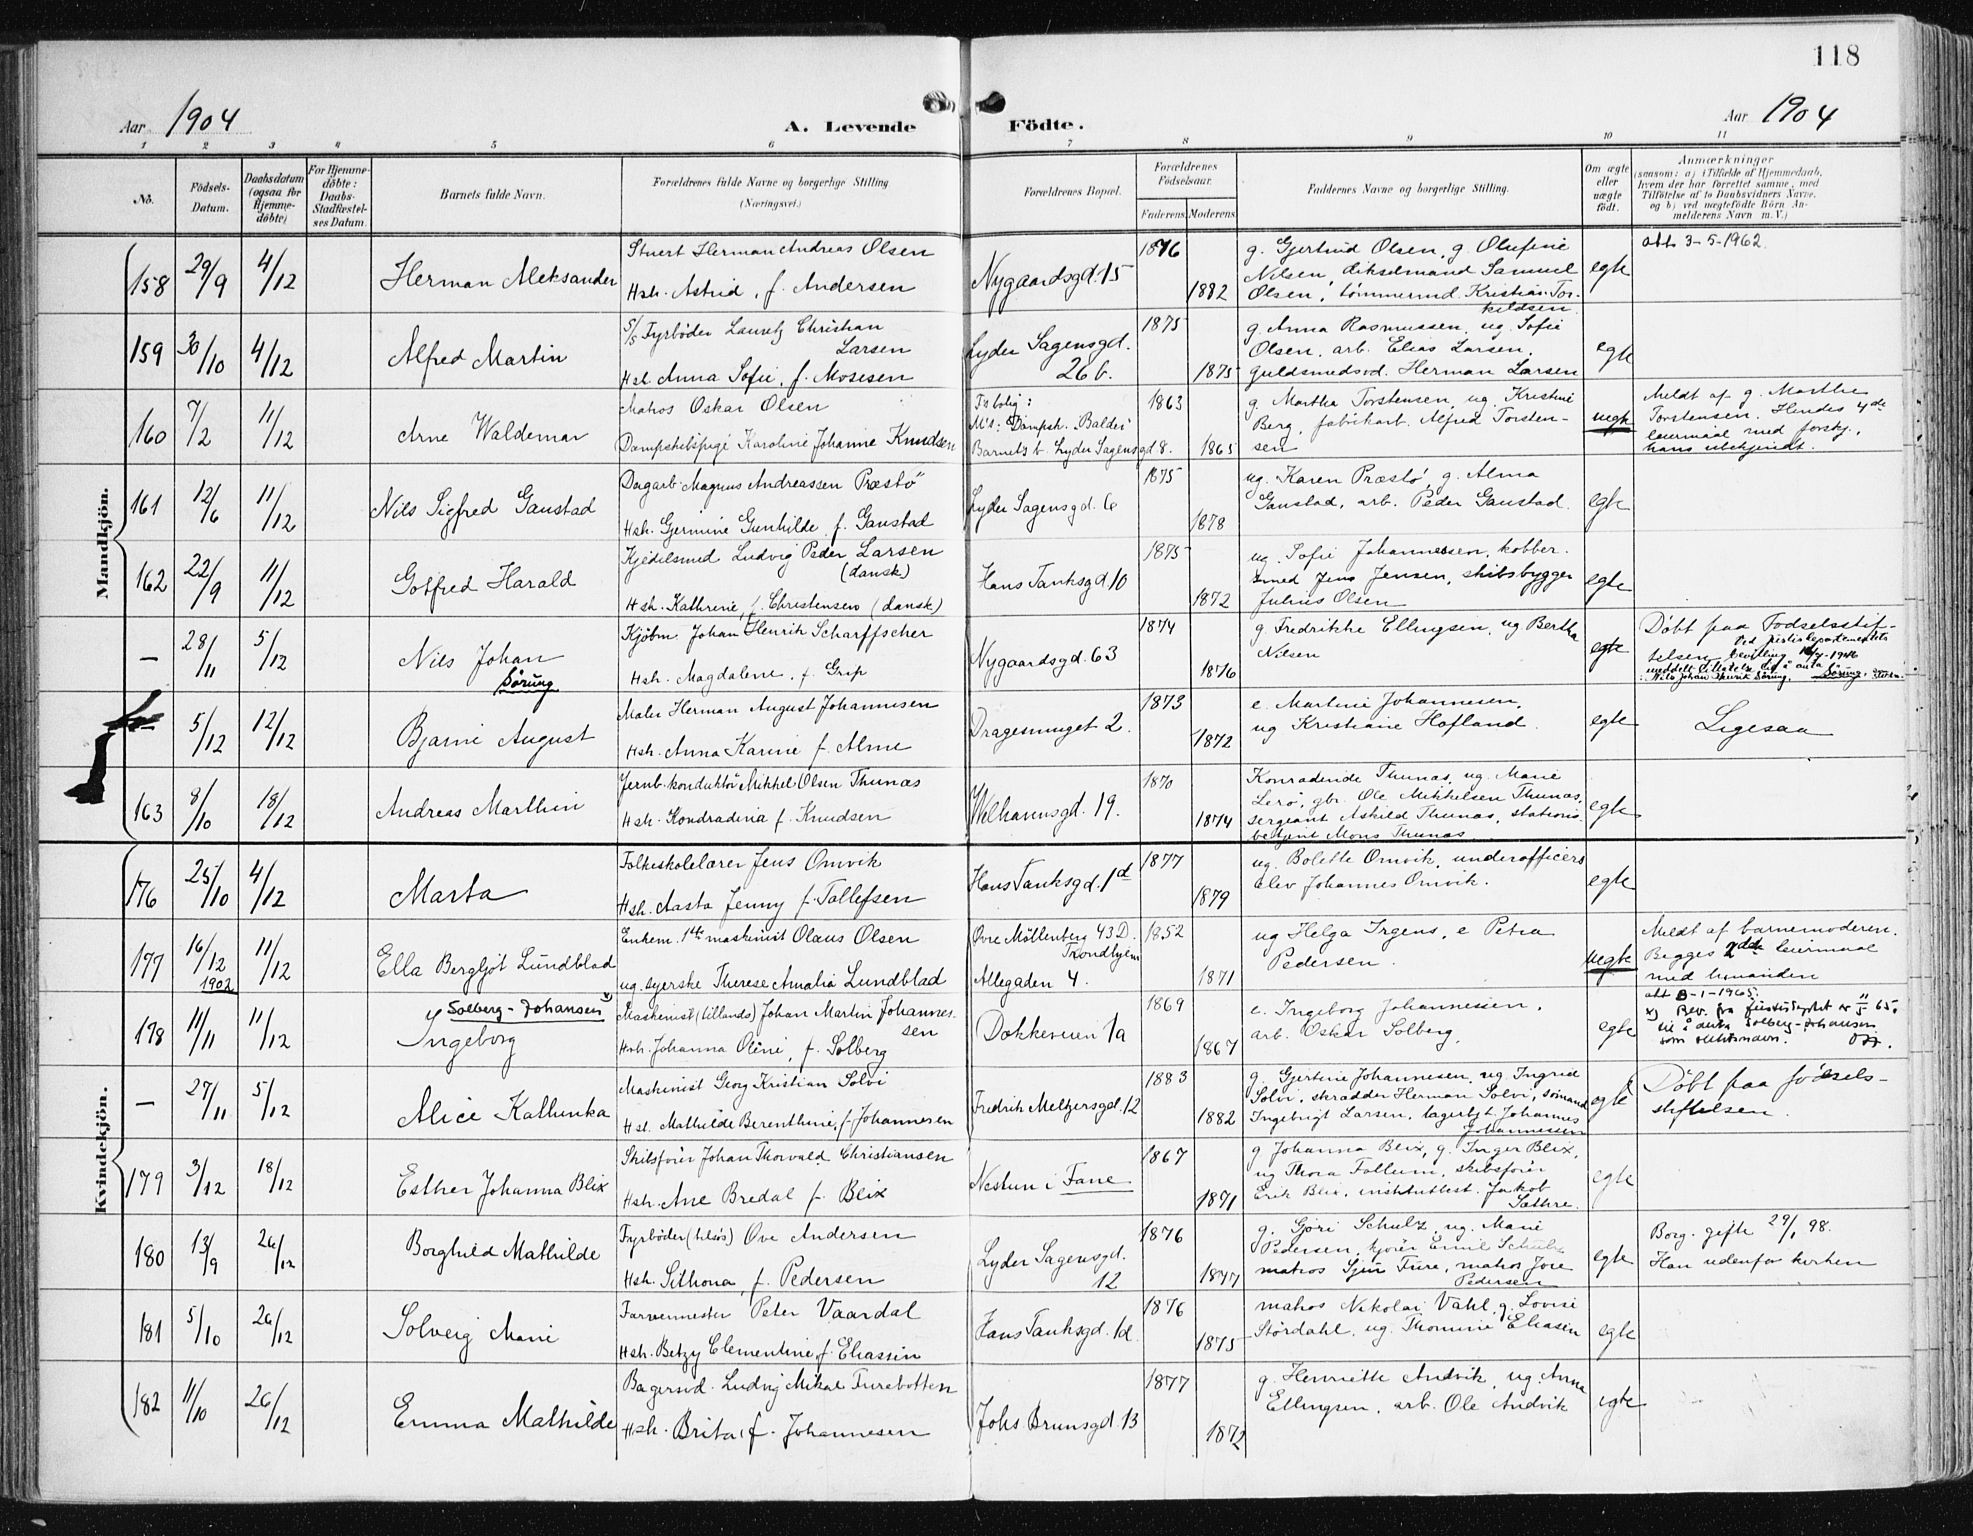 118
Aar 1904
A. Levende Födte.
Aar 1904
1 2 3 4 5 6 7 8 9 10 11
No.
Födsels-Datum.
Daabsdatum (ogsaa for Hjemmedöbte)
For Hjemmedöbte: Daabs-Stadfæstelses Datum.
Barnets fulde Navn.
Forældrenes fulde Navne og borgerlige Stilling
(Næringsvei.)
Forældrenes Bopæl.
Forældrenes Födselsaar.
Faderens Moderens
Faddernes Navne og borgerlige Stilling.
Om ægte eller uægte födt.
Anmærkninger
(saasom: a) i Tilfælde af Hjemmedaab, hvem der har forrettet samme, med Tilföielse af to Daabsvidners Navne, og b) ved uægtefödte Börn Anmelderens Navn m. V.)
Mandkjön.
158 29/9 4/12 Herman Aleksander
Stuert Herman Andreas Olsen
Hstr. Astrid, f. Andersen
Nygaardsgd. 15
1876
1882
g. Gjertrud Olsen, g. Olufine
Nilsen, dikselmand Samuel
Olsen, tømmermd. Kristian Tor-
kildsen
egte
att. 3-5-1962.
159 30/10 4/12 Alfred Martin
S/S Fyrbøder Lauritz Christian
Larsen
Hst. Anna Sofie, f. Mosesen
Lyder Sagensgd.
26 b.
1875
1875
g. Anna Rasmussen, ug. Sofie
Olsen, arb. Elias Larsen,
guldsmedsvd. Herman Larsen
egte
160 7/2 11/12 Arne Waldemar
Matros Oskar Olsen
Dampskibspige Karoline Johanne Knudsen
Fs bolig:
M's: Dampsk. "Balder"
Barnets b. Lyder Sagensgd 8.
1863
1865
g. Martha Torstensen, ug. Kristine
Berg, fabrikarb. Alfred Torsten-
sen
uegte
Meldt af g. Marthe
Torstensen. Hendes 4de
leiermaal med forskj.,
hans ubekjendt.
161 12/6 11/12 Nils Sigfred Ganstad
Dagarb. Magnus Andreassen Præstö
Hstr. Germine Gunhilde f. Ganstad
Lyder Sagensgd. 6
1875
1878
ug. Karen Præstö, g. Alma
Ganstad, arb. Peder Ganstad.
egte
162 22/9 11/12 Gotfred Harald
Kjedelsmed Ludvig Peder Larsen
(dansk)
Hstr. Kathrine, f. Christensen (dansk)
Hans Tanksgd. 10
1875
1872
ug. Sofie Johannesen, kobber-
smed Jens Jensen, skibsbygger
Julius Olsen
egte
— 28/11 5/12 Nils Johan
Sörung
Kjöbm. Johan Henrik Scharffscher
Hstr. Magdalene, f. Grip
Nygaardsgd. 63
1874
1876
g. Fredrikke Ellingsen, ug. Bertha
Nilsen
egte
Döbt paa Födselsstif-
telsen
5/12 12/12 Bjarne August
Maler Herman August Johannesen
Hstr. Anna Karine f. Alme
Dragesmuget 2
1873
1872
e. Martine Johannesen,
ug Kristiane Hofland.
egte
Ligesaa
163 8/10 18/12 Andreas Marthin
Jernb.konduktör Mikkel Olsen Thunæs
Hstr. Kondradina f. Knudsen
Welhavensgd. 19.
1870
1874
Konradende Thunas, ug. Marie
Lerö, gbr. Ole Mikkelsen Thunas,
sergeant Askild Thunas, stations-
betjent Mons Thunas
egte
Kvindekjön.
176 25/10 4/12 Marta
Folkeskolelærer Jens Omvik
Hstr. Aasta Jenny f. Tollefsen
Hans Tanksgd. 1d
1877
1879
ug. Bolette Omvik, underofficers
elev Johannes Omvik.
egte
177 16/12 1902 11/12 Ella Bergljot Lundblad
Enkem. 1ste maskinist Olaus Olsen
ug. syerske Therese Amalia Lundblad
Øvre Möllenberg 43 D.
Trondhjem
Allegaden 4
1852
1871
ug Helga Irgens, e Petra
Pedersen.
uegte
Meldt af barnemoderen.
Begges 2det leiermaal
med hinanden
178 11/11 11/12
Solberg-Johansen x)
Ingeborg
Maskinist (tillands) Johan Martin Johannes-
sen
Hstr. Johanna Oline, f. Solberg
Dokkeveien 1a
1869
1867
e. Ingeborg Johannessen,
arb. Oskar Solberg,
egte
att 8-1-1965.
til å anta Solberg-Johansen
som slektsnavn.
— 27/11 5/12 Alice Kathinka
Maskinist Georg Kristian Solvi
Hst. Mathilde Berenthine, f. Johannesen
Fredrik Meltzersgd. 12
1883
1882
g. Gjertine Johannesen, ug. Ingrid
Solvi, skrædder Herman Solvi, sömand
Ingebrigt Larsen, lagerbt. Johannes
Johannessen
egte
Döbt paa födsels-
stiftelsen.
179 3/12 18/12 Esther Johanna Blix
Skibsförer Johan Thorvald Christiansen
Hstr. Ane Bredal f. Blix
Nestun i Fane
1867
1871
g. Johanna Blix, g. Inger Blix,
ug Thora Follum, skibsförer
Erik Blix, institutbest. Jakob
Sæthre.
egte
180 13/9 26/12 Borghild Mathilde
Fyrbøder (tilsös) Ove Andersen
Hstr. Sithona, f. Pedersen
Lyder Sagensgd.
12
1876
1877
g. Göri Schulz, ug. Marie
Pedersen, kjörer Emil Schulz
matros Sjur Ture, matros Jore
Pedersen
egte
Borg. gifte 29/1 98.
Han udenfor kirken
181 5/10 26/12 Solveig Marie
Farvermester Peter Vaardal
Hstr. Betzy Clementine f. Eliassen
Hans Tanksgd. 1d.
1876
1875
matros Nikolai Vahl, g. Lovise
Stördahl, ug. Thomine Eliasen
egte
182 11/10 26/12 Emma Mathilde
Bagersvd. Ludvig Mikal Furebotten
Hstr. Brita, f. Johannesen
Johs Brunsgd. 13
1877
1872
g. Henriette Andvik, ug Anna
Ellingsen, arb. Ole Andvik
egte